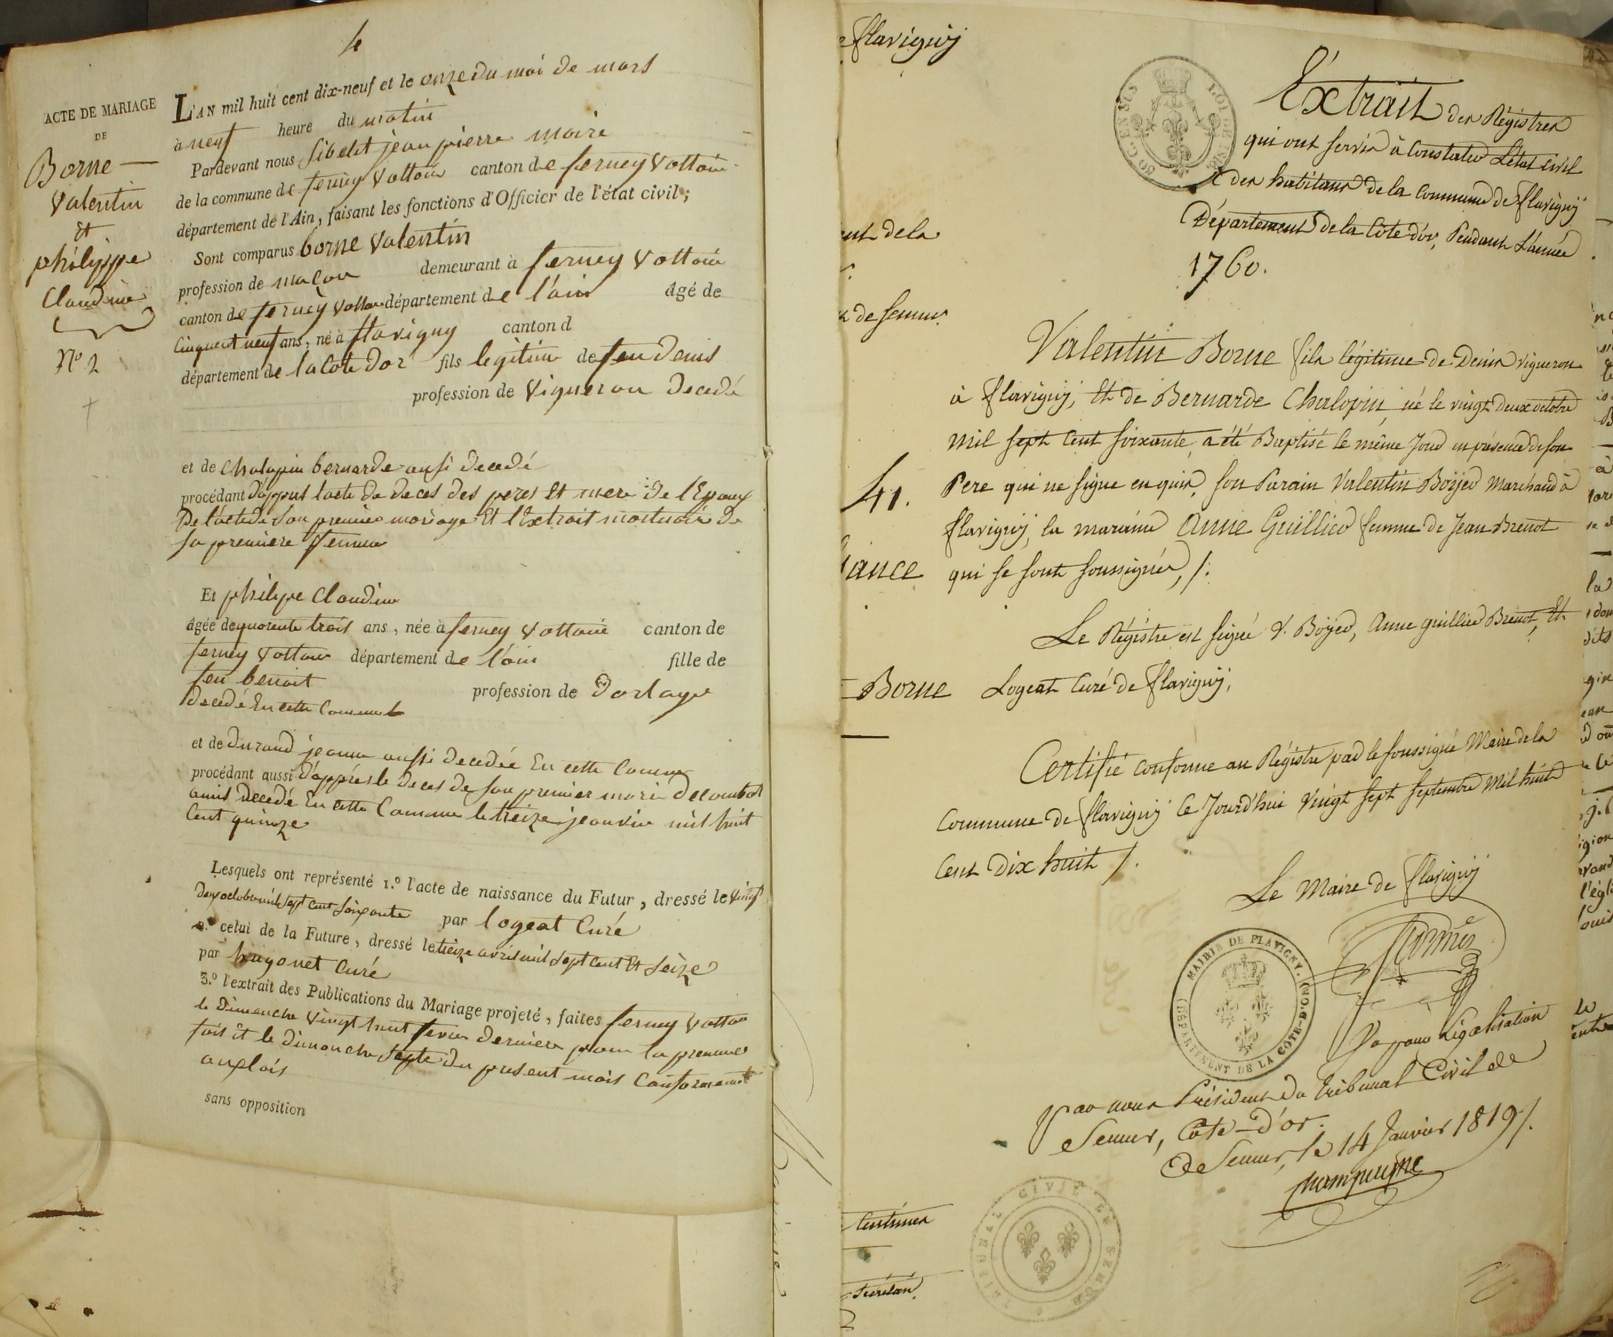 4
ACTE DE MARIAGE
DE
Borne
Valentin
et
philippe
Claudine
N° 2
L'AN mil huit cent dix-neuf et le onze du moi de mars
à neuf heure du matin
Pardevant nous jean pierre maire
de la commune de ferney Voltaire canton de ferney Voltaire
département de l'Ain, faisant les fonctions d'Officier de l'état civil;
Sont comparus borne Valentin
profession de maçon demeurant à ferney Voltaire
canton de ferney Voltaire département de l'ain âgé de
Cinquant neuf ans, né à flavigny canton d
département de la Cote Dor fils legitime de feu Denis
profession de Vigneron Decedé
et de Chalopin bernarde ausi decedé
procédant d'appres l'acte de deces des peres Et mere de l'Epoux
De l'acte de son premier mariage Et l'Extrait mortuaire de
sa premiere femme
Et philipe Claudine
âgée de quarente trois ans, née à ferney Voltaire canton de
ferney Voltaire département de l'ain fille de
feu benoit profession de
Decedé En cette Commune
et de Durand jeanne aussi decedée En cette Commune
procédant aussi d'appres le deces de son premier mari
decedé En cette Commune le treize janvier mil huit
Cent quinze
Lesquels ont représenté 1.° l'acte de naissance du Futur, dressé le vingt
Deux octobre mil sept cent soixante par logeat Curé
2.° celui de la Future, dressé le treize avril mil sept cent et seize
par hugonet Curé
3.° l'extrait des Publications du Mariage projeté, faites ferney Voltaire
le Dimanche Vingt huit fevrier derniere pour la premiere
fois Et le dimanche Septe du present mois Conformement
aux lois
sans opposition
flavigny
ent de la
de Semur
41.
iance
Borne
Centimes
Extrait des Régistres
qui ont servis à Constater L'état Civil
des habitans de la Commune de flavigny
Département de la Côte d'or, Pendant L'année
1760.
Valentin Borne fils légitime de Denis vigneron
à flavigny, et de Bernarde Chalopin né le vingt deux octobre
mil sept Cent soixante, a été Baptisé le même Jour en présence de son
Pere qui ne signe enquis, son Parain Valentin Boyer Marchand à
flavigny, la maraine Anne Guillier femme de Jean Brenot
qui se sont soussignés, /.
Le Régistre est signé V. Boyer, Anne guillier Brenot, Et
Logeat Curé de flavigny,
Certifié conforme au Régistre par le soussigné Maire de la
Commune de flavigny Ce Jourd'hui vingt sept septembre mil huit
Cent Dix huit /.
Le Maire de flavigny
MAIRIE DE FLAVIGNY, (DÉPARTEMENT DE LA CÔTE-D'OR)
Vu pour Légalisation
Par nous Président du tribunal Civil de
Semur, Côte-d'or.
De Semur, le 14 Janvier 1819 /.
Champagne
TRIBUNAL CIVIL DE SEMUR